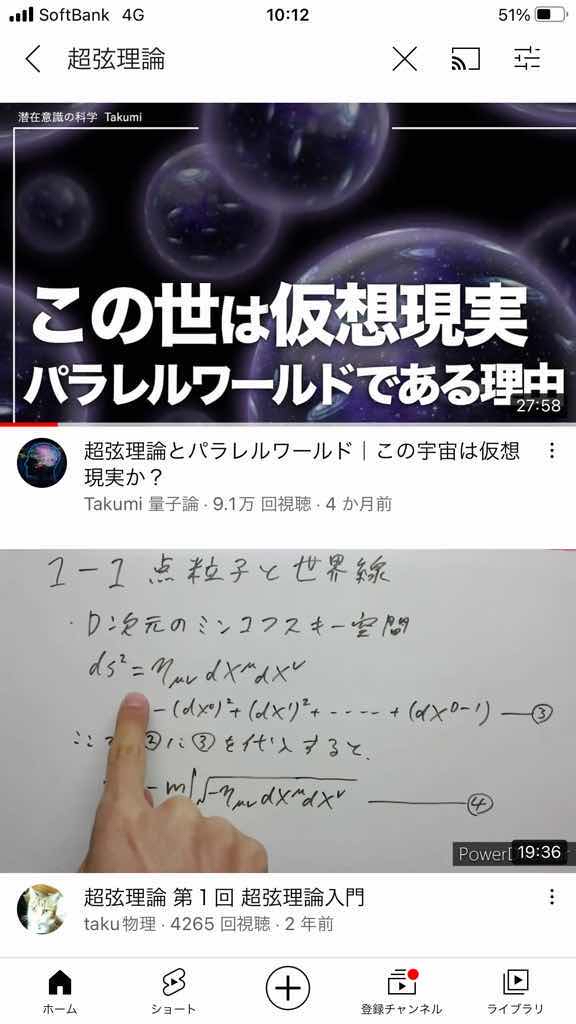 SoftBank 4G 10:12 51%
超弦理論
潜在意識の科学 Takumi
この世は仮想現実
パラレルワールドである理由
27:58
超弦理論とパラレルワールド｜この宇宙は仮想
現実か？
Takumi 量子論・9.1万 回視聴・4 か月前
1-1 点粒子と世界線
・D次元のミンコフスキー空間
ds² = ημν dX^μ dX^ν
-(dX⁰)² + (dX¹)² + ----- + (dX^D-1) —③
②に③を代入すると、
-m∫√-ημν dX^μ dX^ν —④
19:36
超弦理論 第１回 超弦理論入門
taku物理・4265 回視聴・2 年前
ホーム ショート 登録チャンネル ライブラリ